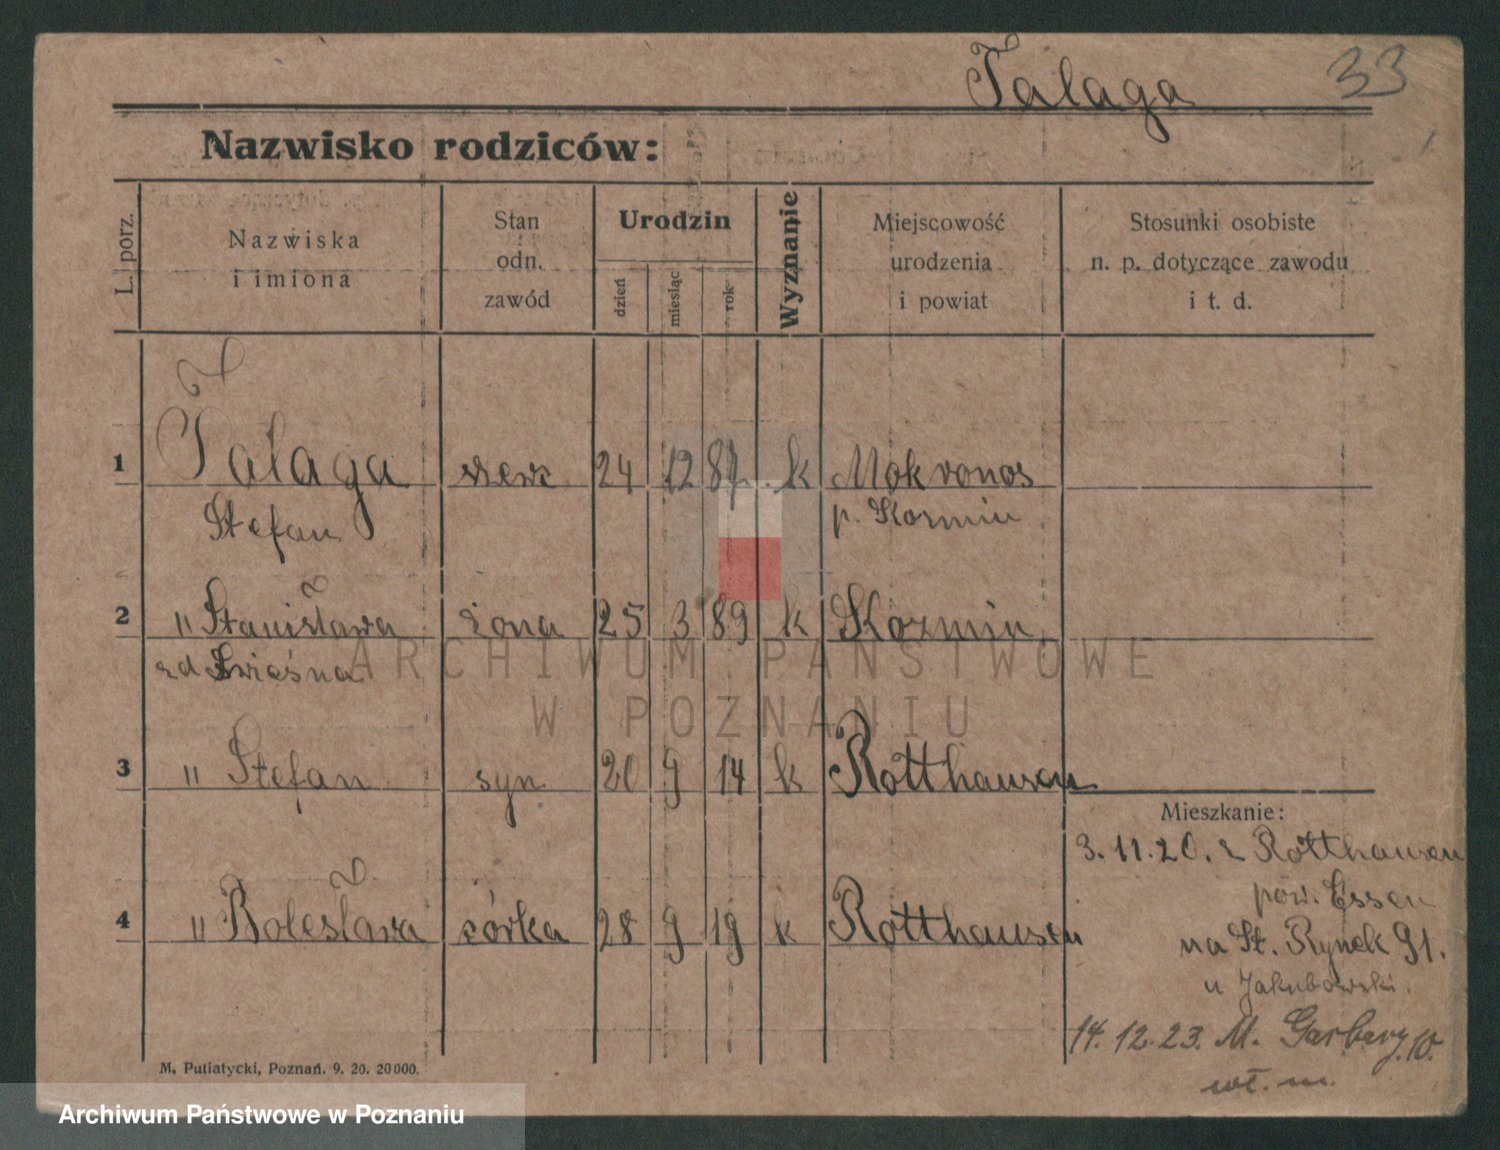 Talaga 33
Nazwisko rodziców:
L. porz.
Nazwiska
i imiona
Stan
odn.
zawód
Urodzin
dzień
miesiąc
rok
Wyznanie
Miejscowość
urodzenia
i powiat
Stosunki osobiste
n. p. dotyczące zawodu
i t. d.
1 Talaga szewc 24 12 87 k Mokronos
Stefan p. Kozmin
2 " Stanisława żona 25 3 89 k Kozmin
zd
3 " Stefan syn 20 9 14 k Rotthausen
Mieszkanie:
3.11.20. z Rotthausen
pow. Essen
4 " Bolesława córka 28 9 19 k Rotthausen
na St. Rynek 91.
u Jakubowski.
14.12.23. M. Garbary 10.
wł. m.
M. Putiatycki, Poznań. 9. 20. 20000.
ARCHIWUM PAŃSTWOWE
W POZNANIU
Archiwum Państwowe w Poznaniu